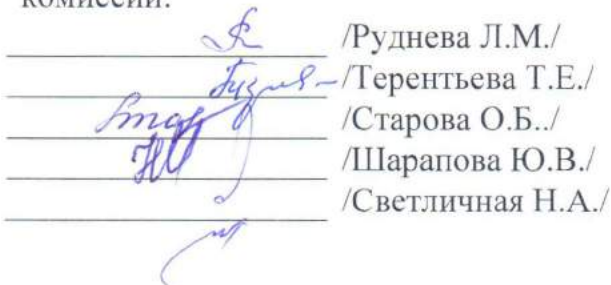 комиссии:
/Руднева Л.М./
/Терентьева Т.Е./
/Старова О.Б../
/Шарапова Ю.В./
/Светличная Н.А./